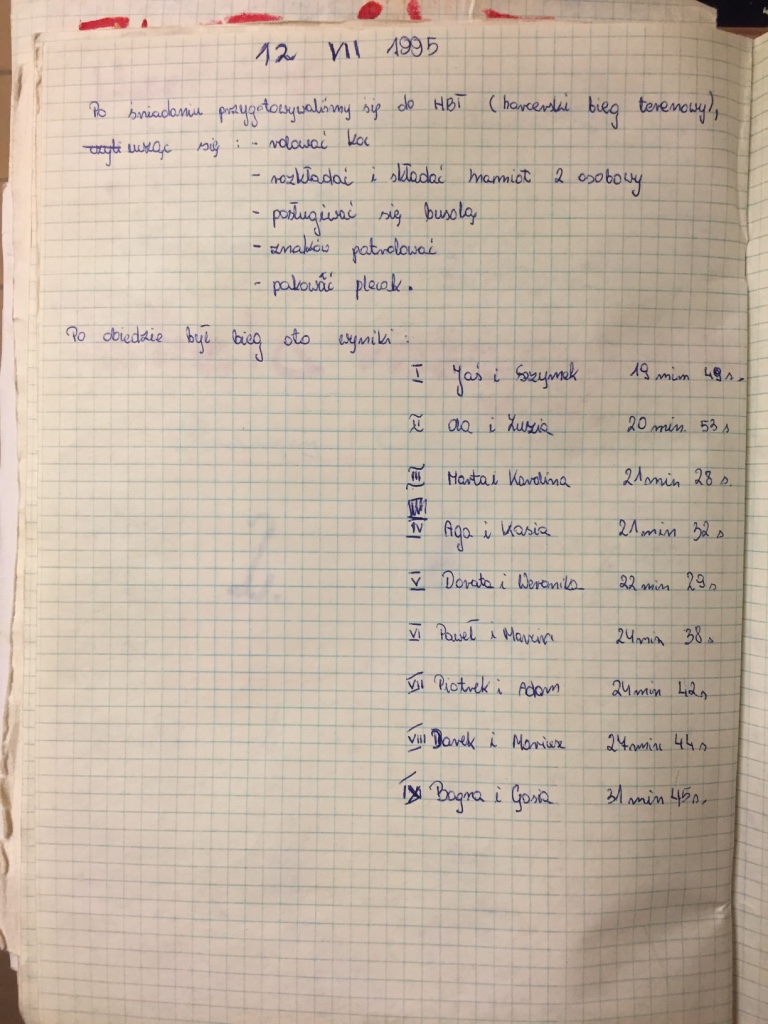 12 VII 1995
Po śniadaniu przygotowywaliśmy się do HBT (harcerski bieg terenowy),
czyli ucząc się : - rolować koc
- rozkładać i składać namiot 2 osobowy
- posługiwać się busolą
- znaków patrolować
- pakować plecak.
Po obiedzie był bieg oto wyniki :
I Jaś i Szymek 19 min 49 s.
II Ola i Zuzia 20 min. 53 s
III Marta i Karolina 21 min 28 s.
IV Aga i Kasia 21 min 32 s
V Dorota i Weronika 22 min 29 s
VI Paweł i Marcin 24 min 38 s
VII Piotrek i Adam 24 min 42 s
VIII Darek i Mariusz 27 min 44 s
IX Bogna i Gosia 31 min 45 s.